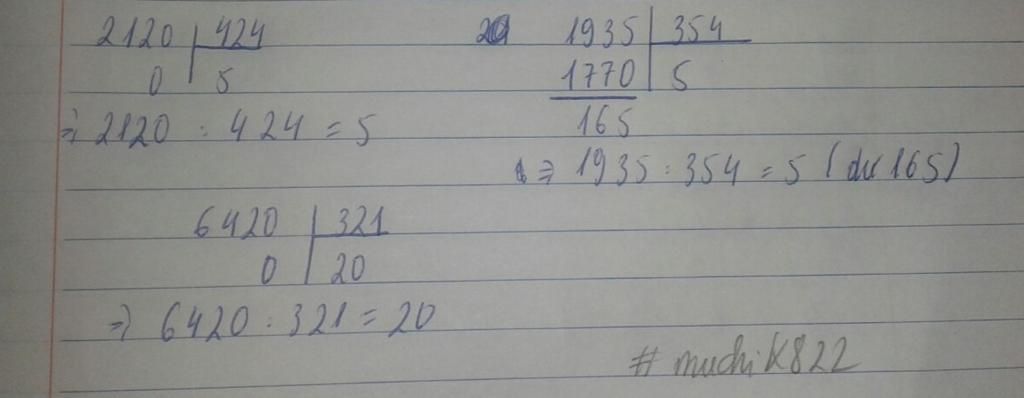 2120 424
0 5
⇒ 2120 : 424 = 5
1935 354
1770 5
165
⇒ 1935 : 354 = 5 (dư 165)
6420 321
0 20
⇒ 6420 : 321 = 20
# muchiK822